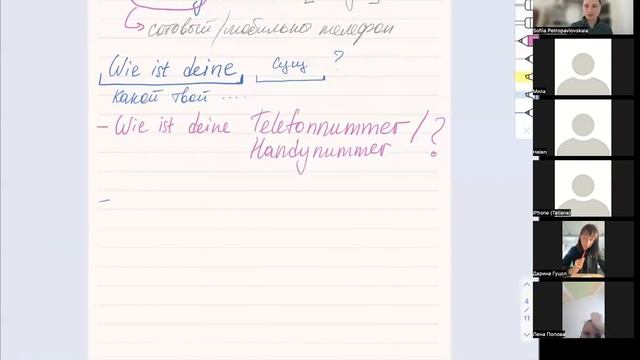 сотовый/мобильно телефон
Wie ist deine сущ ?
какой твой ....
- Wie ist deine Telefonnummer/
Handynummer ?
-
Sofiia Petropavlovskaia
Мила
Helen
iPhone (Tatiana)
Дарина Гуцол
Лена Попова
4
11